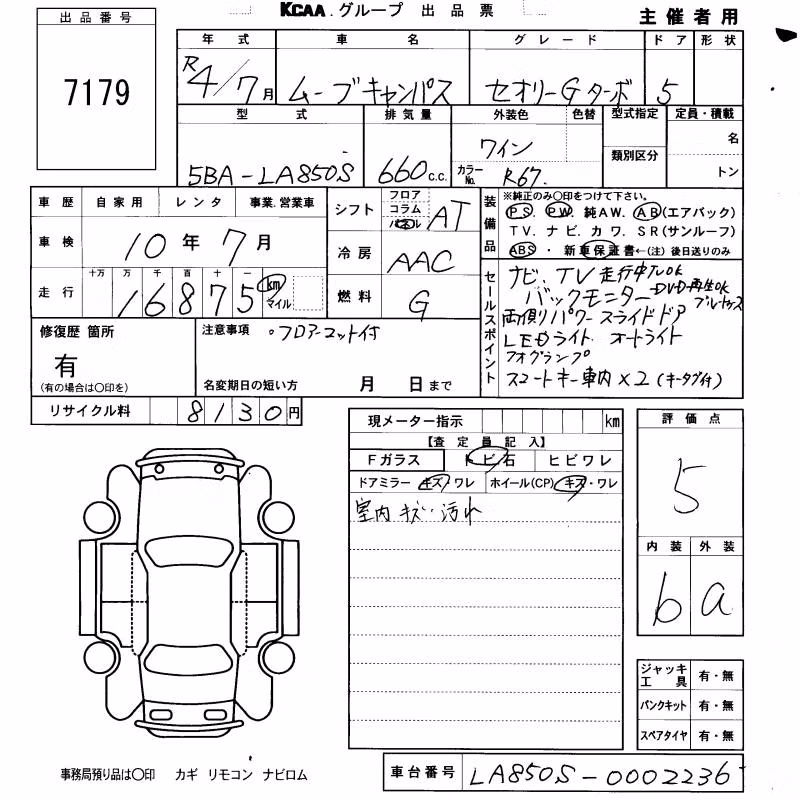 KCAA.グループ 出品票
主催者用
出品番号
7179
年式 車名 グレード ドア 形状
R4/7月 ムーブキャンバス セオリーGターボ 5
型式 排気量 外装色 色替 型式指定 定員・積載
5BA-LA850S 660c.c. ワイン カラーNo. R67. 類別区分 名 トン
車歴 自家用 レンタ 事業.営業車
車検 10年7月
走行 十万 万 千 百 十 一
16875 km マイル
シフト フロア コラム パネル AT
冷房 AAC
燃料 G
装備品
※純正のみ〇印をつけて下さい。
PS. PW. 純AW. AB(エアバック)
TV. ナビ. カワ. SR(サンルーフ)
ABS・新車保証書←(注)後日送りのみ
セールスポイント
ナビ、TV走行中TVOK
DVD再生OK
バックモニター ブルートゥース
両側パワースライドドア
LEDライト オートライト
フォグランプ
スマートキー車内×2(キータグ付)
修復歴 箇所
有
(有の場合は〇印を)
注意事項 ・フロアーマット付
名変期日の短い方 月 日まで
リサイクル料 8130円
現メーター指示 km
【査定員記入】
Fガラス トビ石 ヒビワレ
ドアミラー キズ・ワレ ホイール(CP) キズ・ワレ
室内キズ・汚れ
評価点
5
内装 外装
b a
ジャッキ工具 有・無
パンクキット 有・無
スペアタイヤ 有・無
事務局預り品は〇印 カギ リモコン ナビロム
車台番号 LA850S-0002236